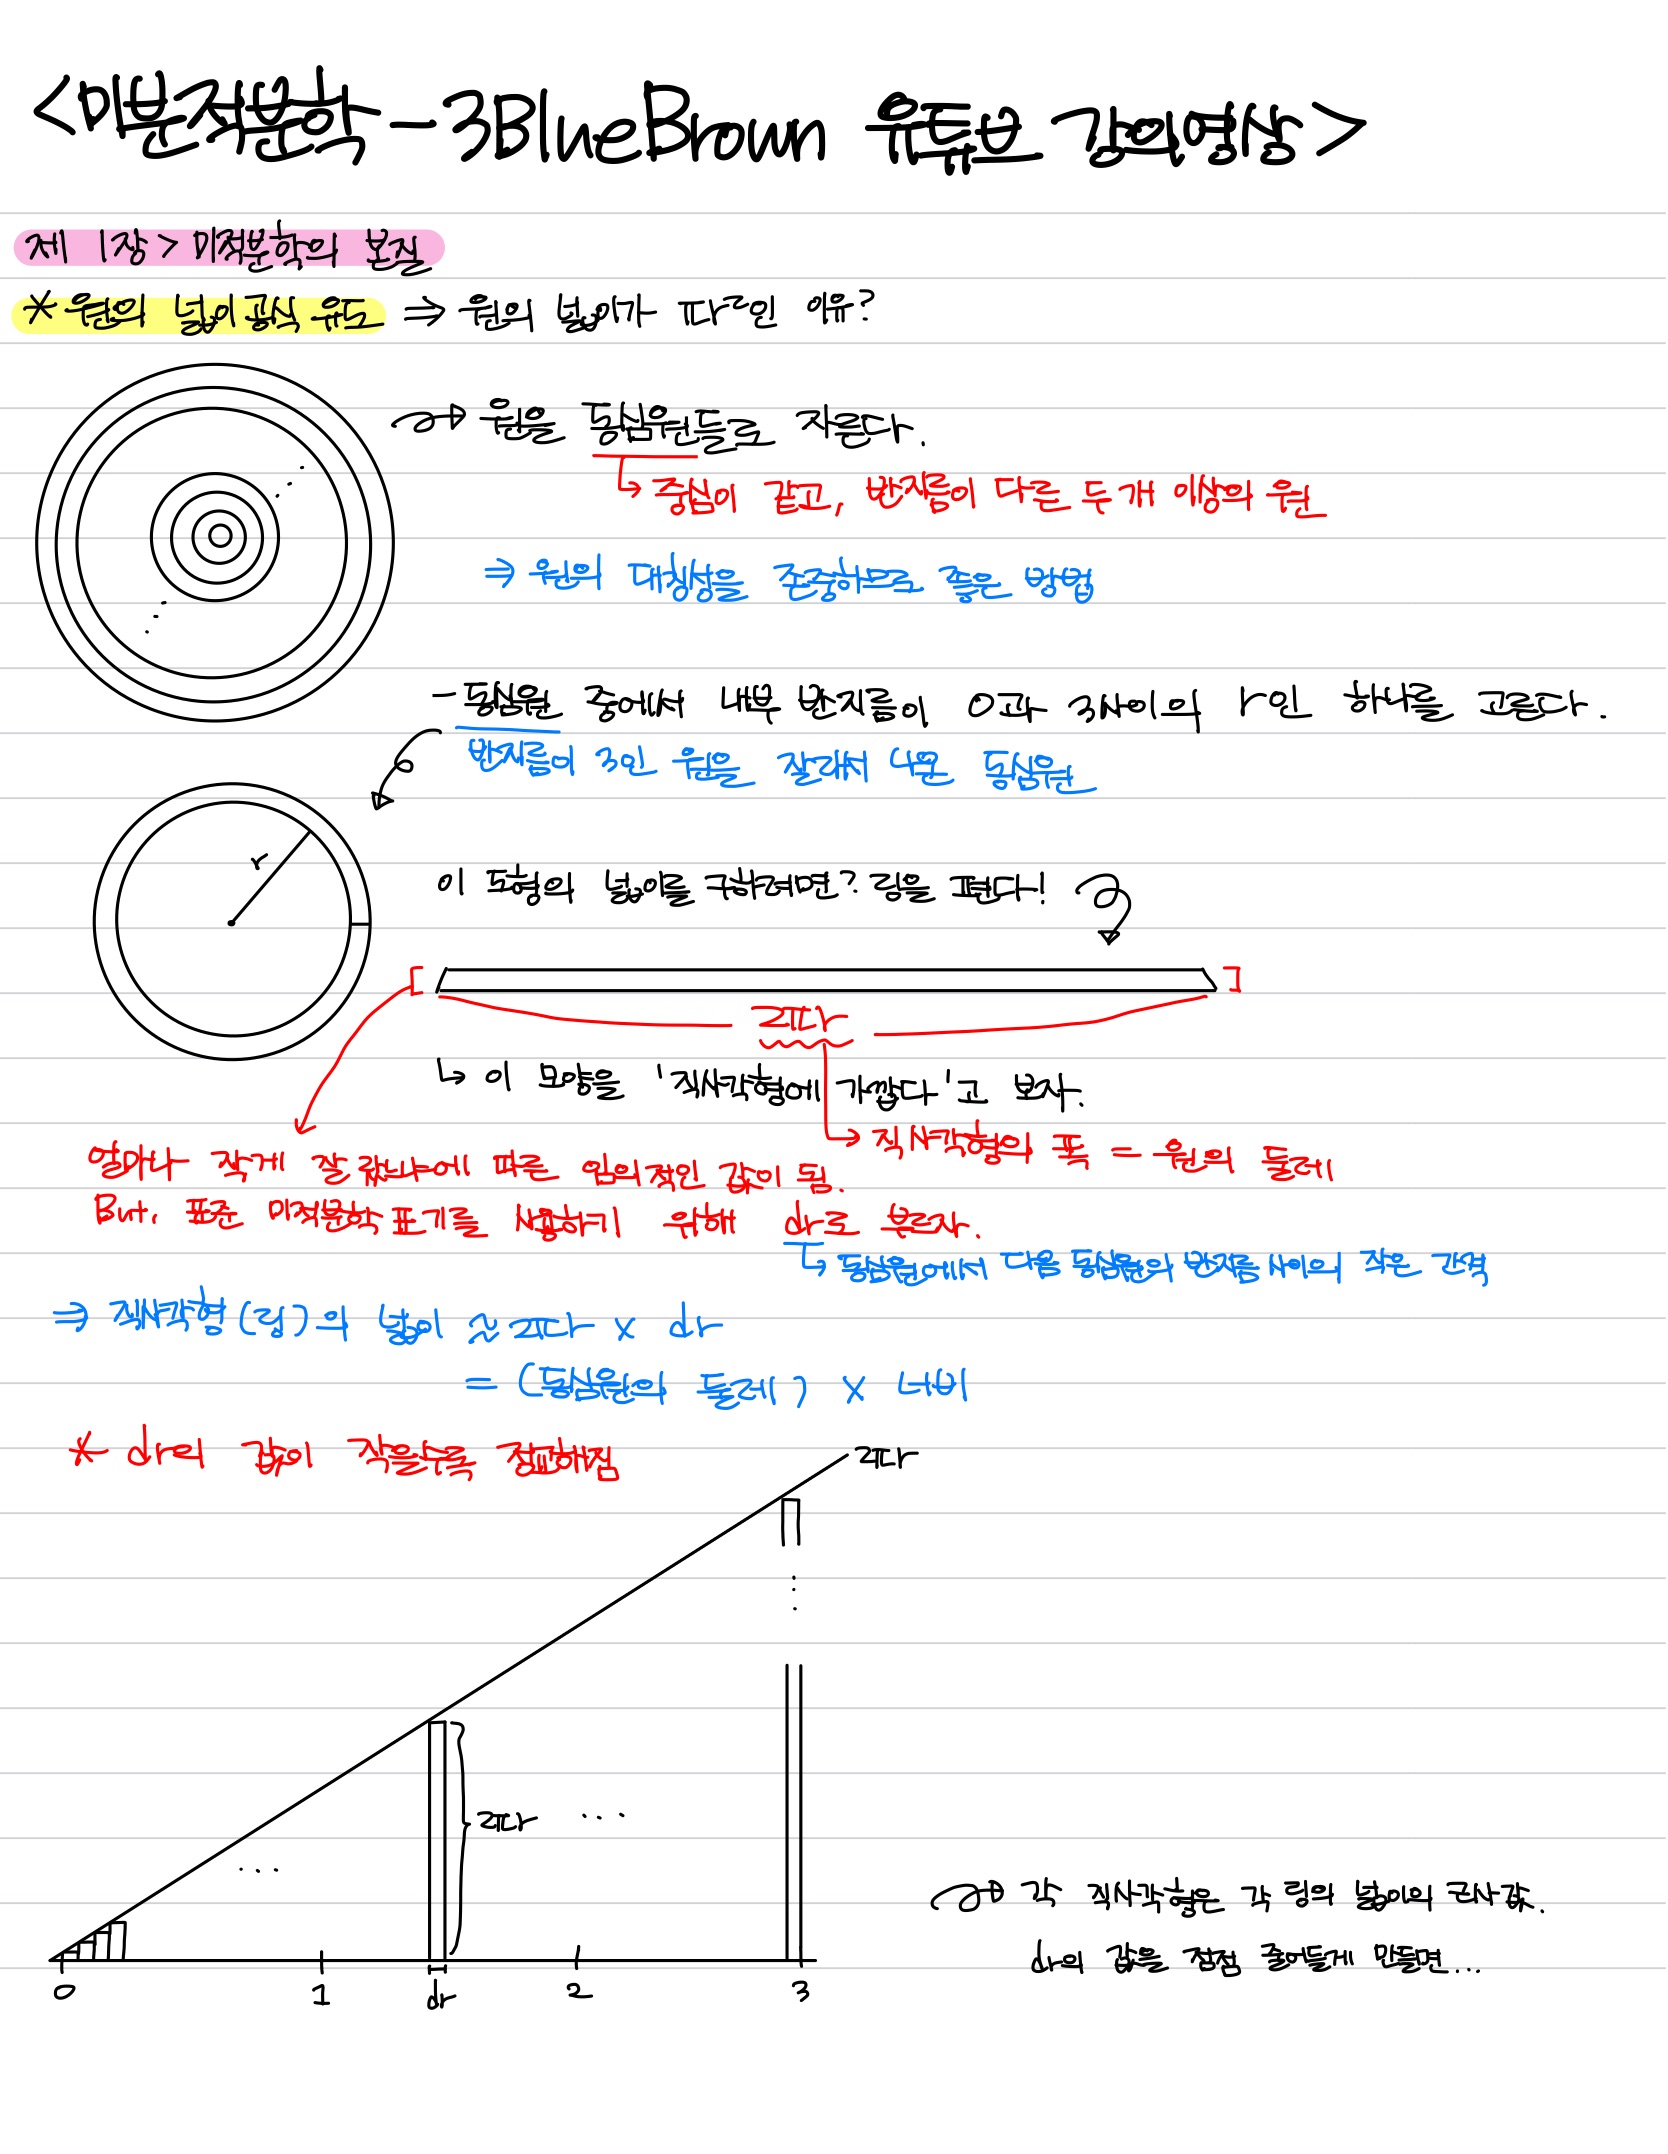 <미분적분학 - 3BlueBrown 유튜브 강의영상>
제 1장 > 미적분학의 본질
* 원의 넓이 공식 유도 ⇒ 원의 넓이가 πr²인 이유?
→ 원을 동심원들로 자른다.
↳ 중심이 같고, 반지름이 다른 두 개 이상의 원
⇒ 원의 대칭성을 존중하므로 좋은 방법
- 동심원 중에서 내부 반지름이 0과 3사이의 r인 하나를 고른다.
반지름이 3인 원을 잘라서 나온 동심원
r
이 도형의 넓이를 구하려면? 링을 편다!
[ ]
2πr
↳ 이 모양을 '직사각형에 가깝다'고 보자.
↳ 직사각형의 폭 = 원의 둘레
얼마나 작게 잘랐냐에 따른 임의적인 값이 됨.
But, 표준 미적분학 표기를 사용하기 위해 dr로 부르자.
↳ 동심원에서 다음 동심원의 반지름 사이의 작은 간격
⇒ 직사각형(링)의 넓이 ≈ 2πr x dr
= (동심원의 둘레) x 너비
* dr의 값이 작을수록 정교해짐
2πr
2πr ...
...
→ 각 직사각형은 각 링의 넓이의 근사값.
dr의 값을 점점 줄어들게 만들면...
0 1 dr 2 3